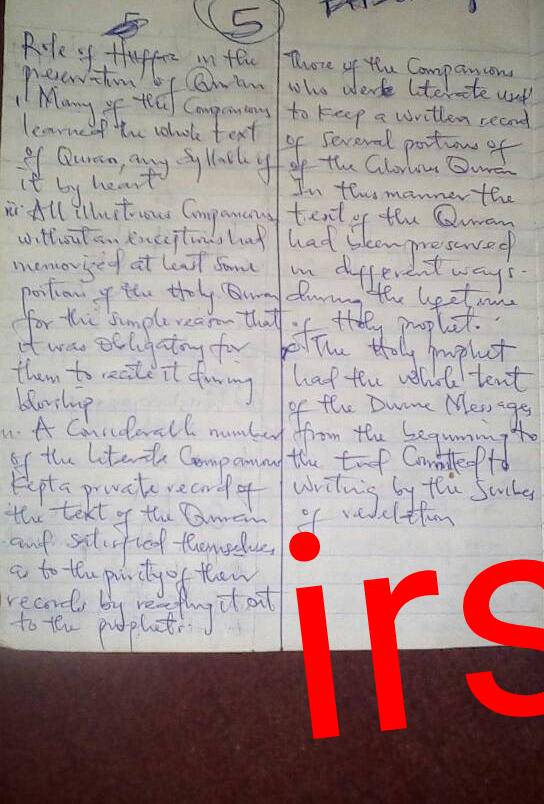 5
5
Role of Huffaz in the
preservation of Quran
i. Many of the Companions
learned the whole text
of Quran, any syllable of
it by heart
ii. All illustrious Companions
without an exceptions had
memorized at least some
portion of the Holy Quran
for the simple reason that
it was obligatory for
them to recite it during
worship
A Considerable number
of the literate Companions
kept a private record of
the text of the Quran
and satisfied themselves
as to the purity of their
records by reading it out
to the prophet.
Those of the Companions
who were literate used
to keep a written record
of several portions of
of the Glorious Quran
In this manner the
text of the Quran
had been preserved
in different ways.
during the lifetime
of Holy prophet.
The Holy prophet
had the whole text
of the Divine Messages
from the beginning to
the End Committed to
writing by the Scribes
of revelation
irs